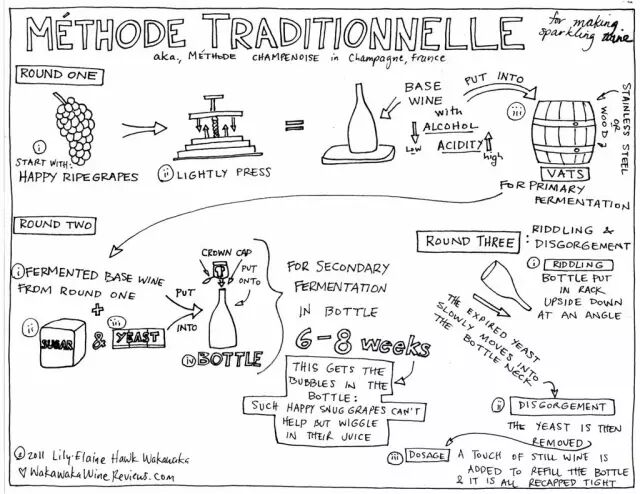 MÉTHODE TRADITIONNELLE
for making
sparkling wine
aka., MÉTHODE CHAMPENOISE in Champagne, France
ROUND ONE
i
START WITH:
HAPPY RIPE GRAPES
ii LIGHTLY PRESS
=
BASE
WINE
with
ALCOHOL
low
ACIDITY
high
PUT INTO
iii
STAINLESS STEEL
OR
WOOD?
VATS
FOR PRIMARY
FERMENTATION
ROUND TWO
i FERMENTED BASE WINE
FROM ROUND ONE
+
ii
SUGAR
&
iii
YEAST
PUT
INTO
CROWN CAP
PUT
ONTO
iv BOTTLE
FOR SECONDARY
FERMENTATION
IN BOTTLE
6-8 weeks
THIS GETS THE
BUBBLES IN THE
BOTTLE:
SUCH HAPPY SNUG GRAPES CAN'T
HELP BUT WIGGLE
IN THEIR JUICE
ROUND THREE: RIDDLING &
DISGORGEMENT
i RIDDLING
BOTTLE PUT
IN RACK
UPSIDE DOWN
AT AN ANGLE
THE EXPIRED YEAST
SLOWLY MOVES INTO
THE BOTTLE NECK
ii DISGORGEMENT
THE YEAST IS THEN
REMOVED
iii DOSAGE
A TOUCH OF STILL WINE IS
ADDED TO REFILL THE BOTTLE
& IT IS ALL RECAPPED TIGHT
© 2011 Lily-Elaine Hawk Wakawaka
WakawakaWineReviews.com